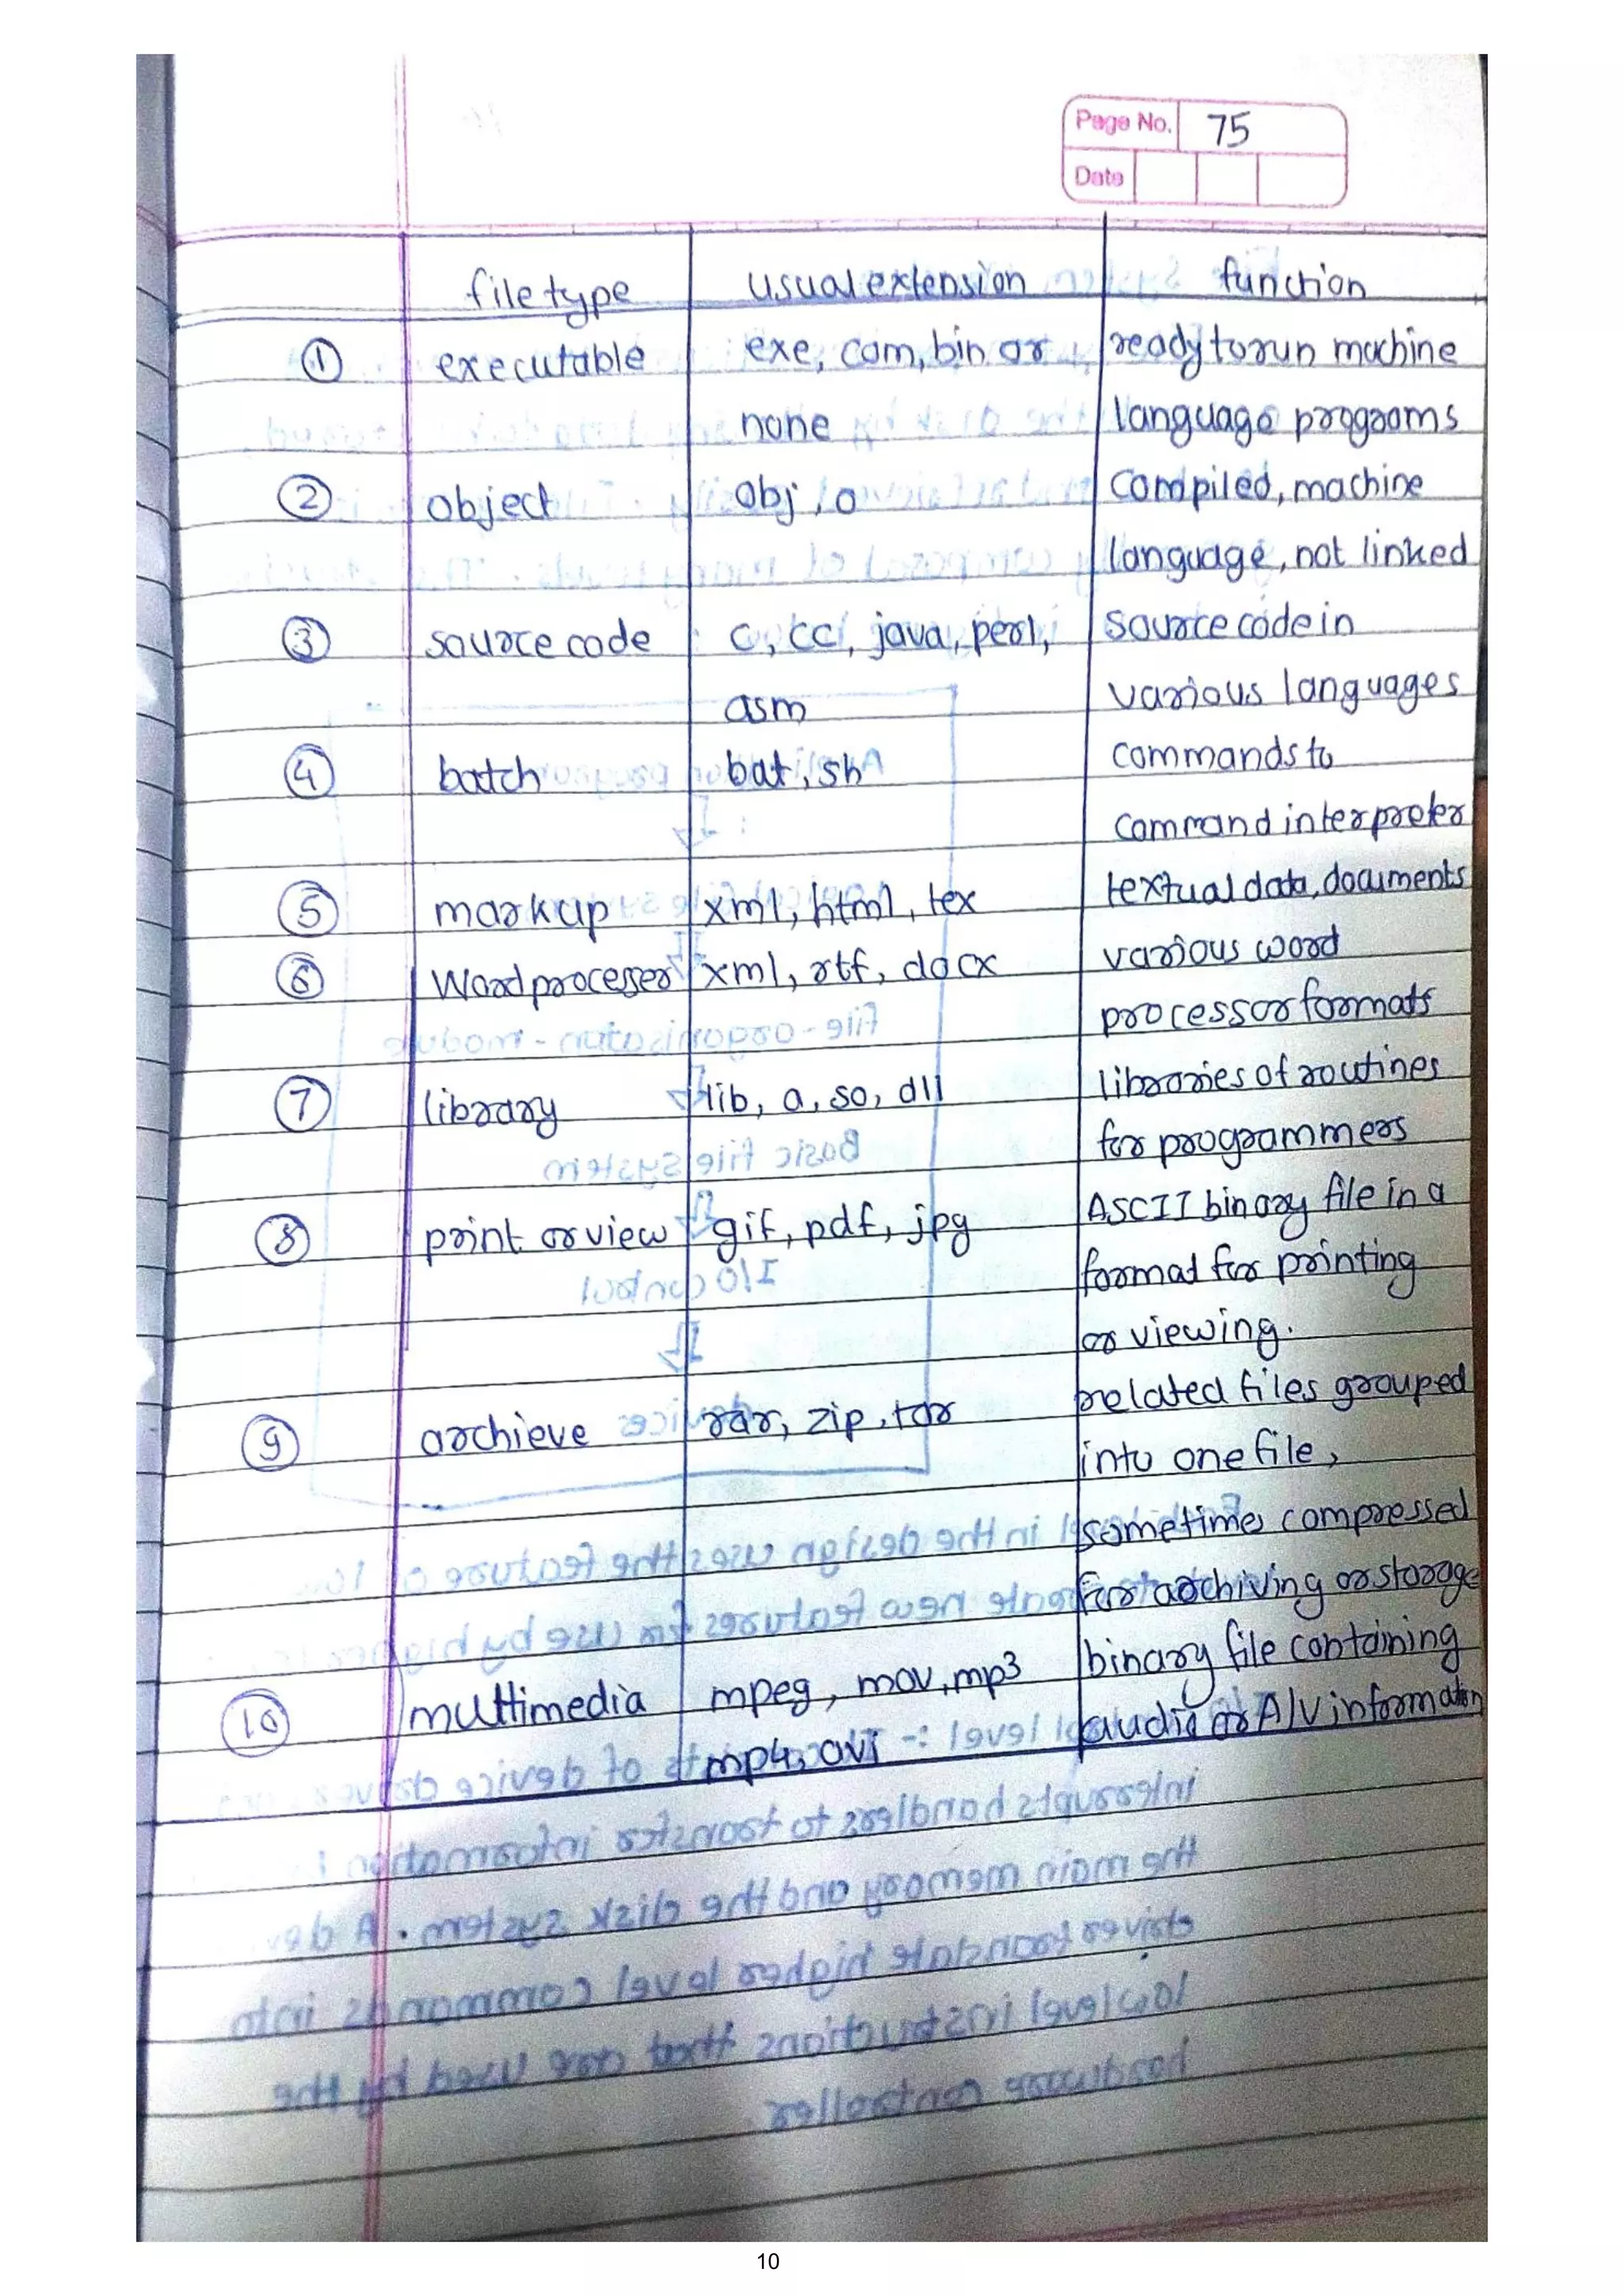 Page No. 75
Date
file type usual extension function
① executable exe, com, bin or ready to run machine
none language programs
② object obj, o compiled, machine
language, not linked
③ source code c, cc, java, perl, source code in
asm various languages
④ batch bat, sh commands to
command interpreter
⑤ markup xml, html, tex textual data, documents
⑥ Word processer xml, rtf, docx various word
processor formats
⑦ library lib, a, so, dll libraries of routines
for programmers
⑧ print or view gif, pdf, jpg ASCII binary file in a
format for printing
or viewing.
⑨ archieve rar, zip, tar related files grouped
into one file,
sometimes compressed
for archiving or storage
⑩ multimedia mpeg, mov, mp3 binary file containing
mp4, avi audio or A/V information
10